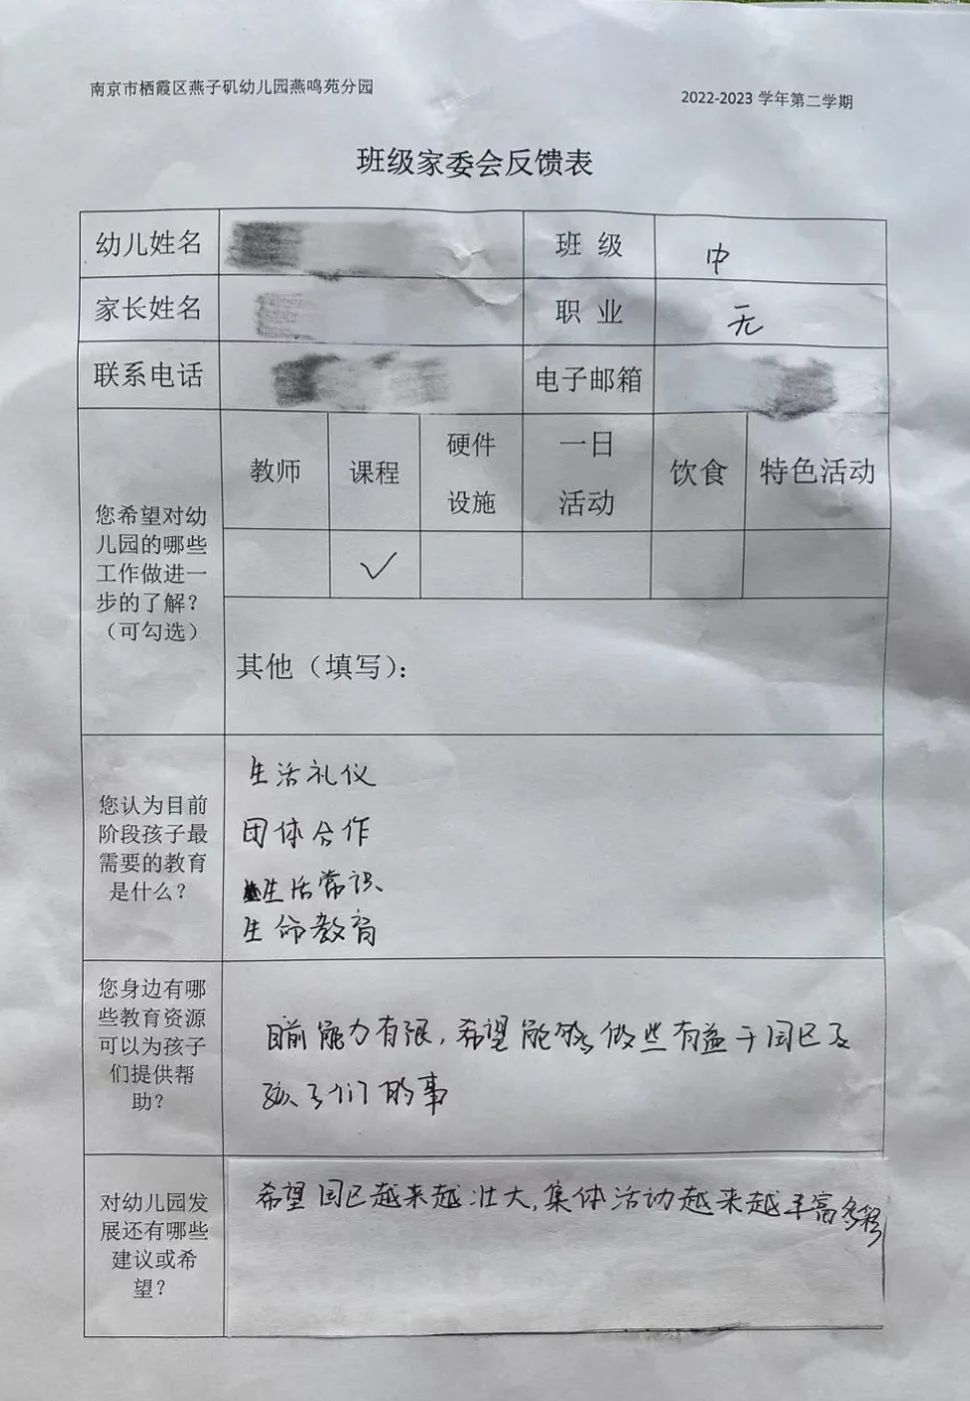 南京市栖霞区燕子矶幼儿园燕鸣苑分园
2022-2023 学年第二学期
班级家委会反馈表
幼儿姓名
班 级 中
家长姓名
职 业 无
联系电话
电子邮箱
您希望对幼
儿园的哪些
工作做进一
步的了解？
（可勾选）
教师 课程 硬件
设施
一日
活动
饮食 特色活动
✓
其他（填写）：
您认为目前
阶段孩子最
需要的教育
是什么？
生活礼仪
团体合作
生活常识
生命教育
您身边有哪
些教育资源
可以为孩子
们提供帮
助？
目前能力有限，希望能够做些有益于园区及
孩子们的事
对幼儿园发
展还有哪些
建议或希
望？
希望园区越来越壮大，集体活动越来越丰富多彩